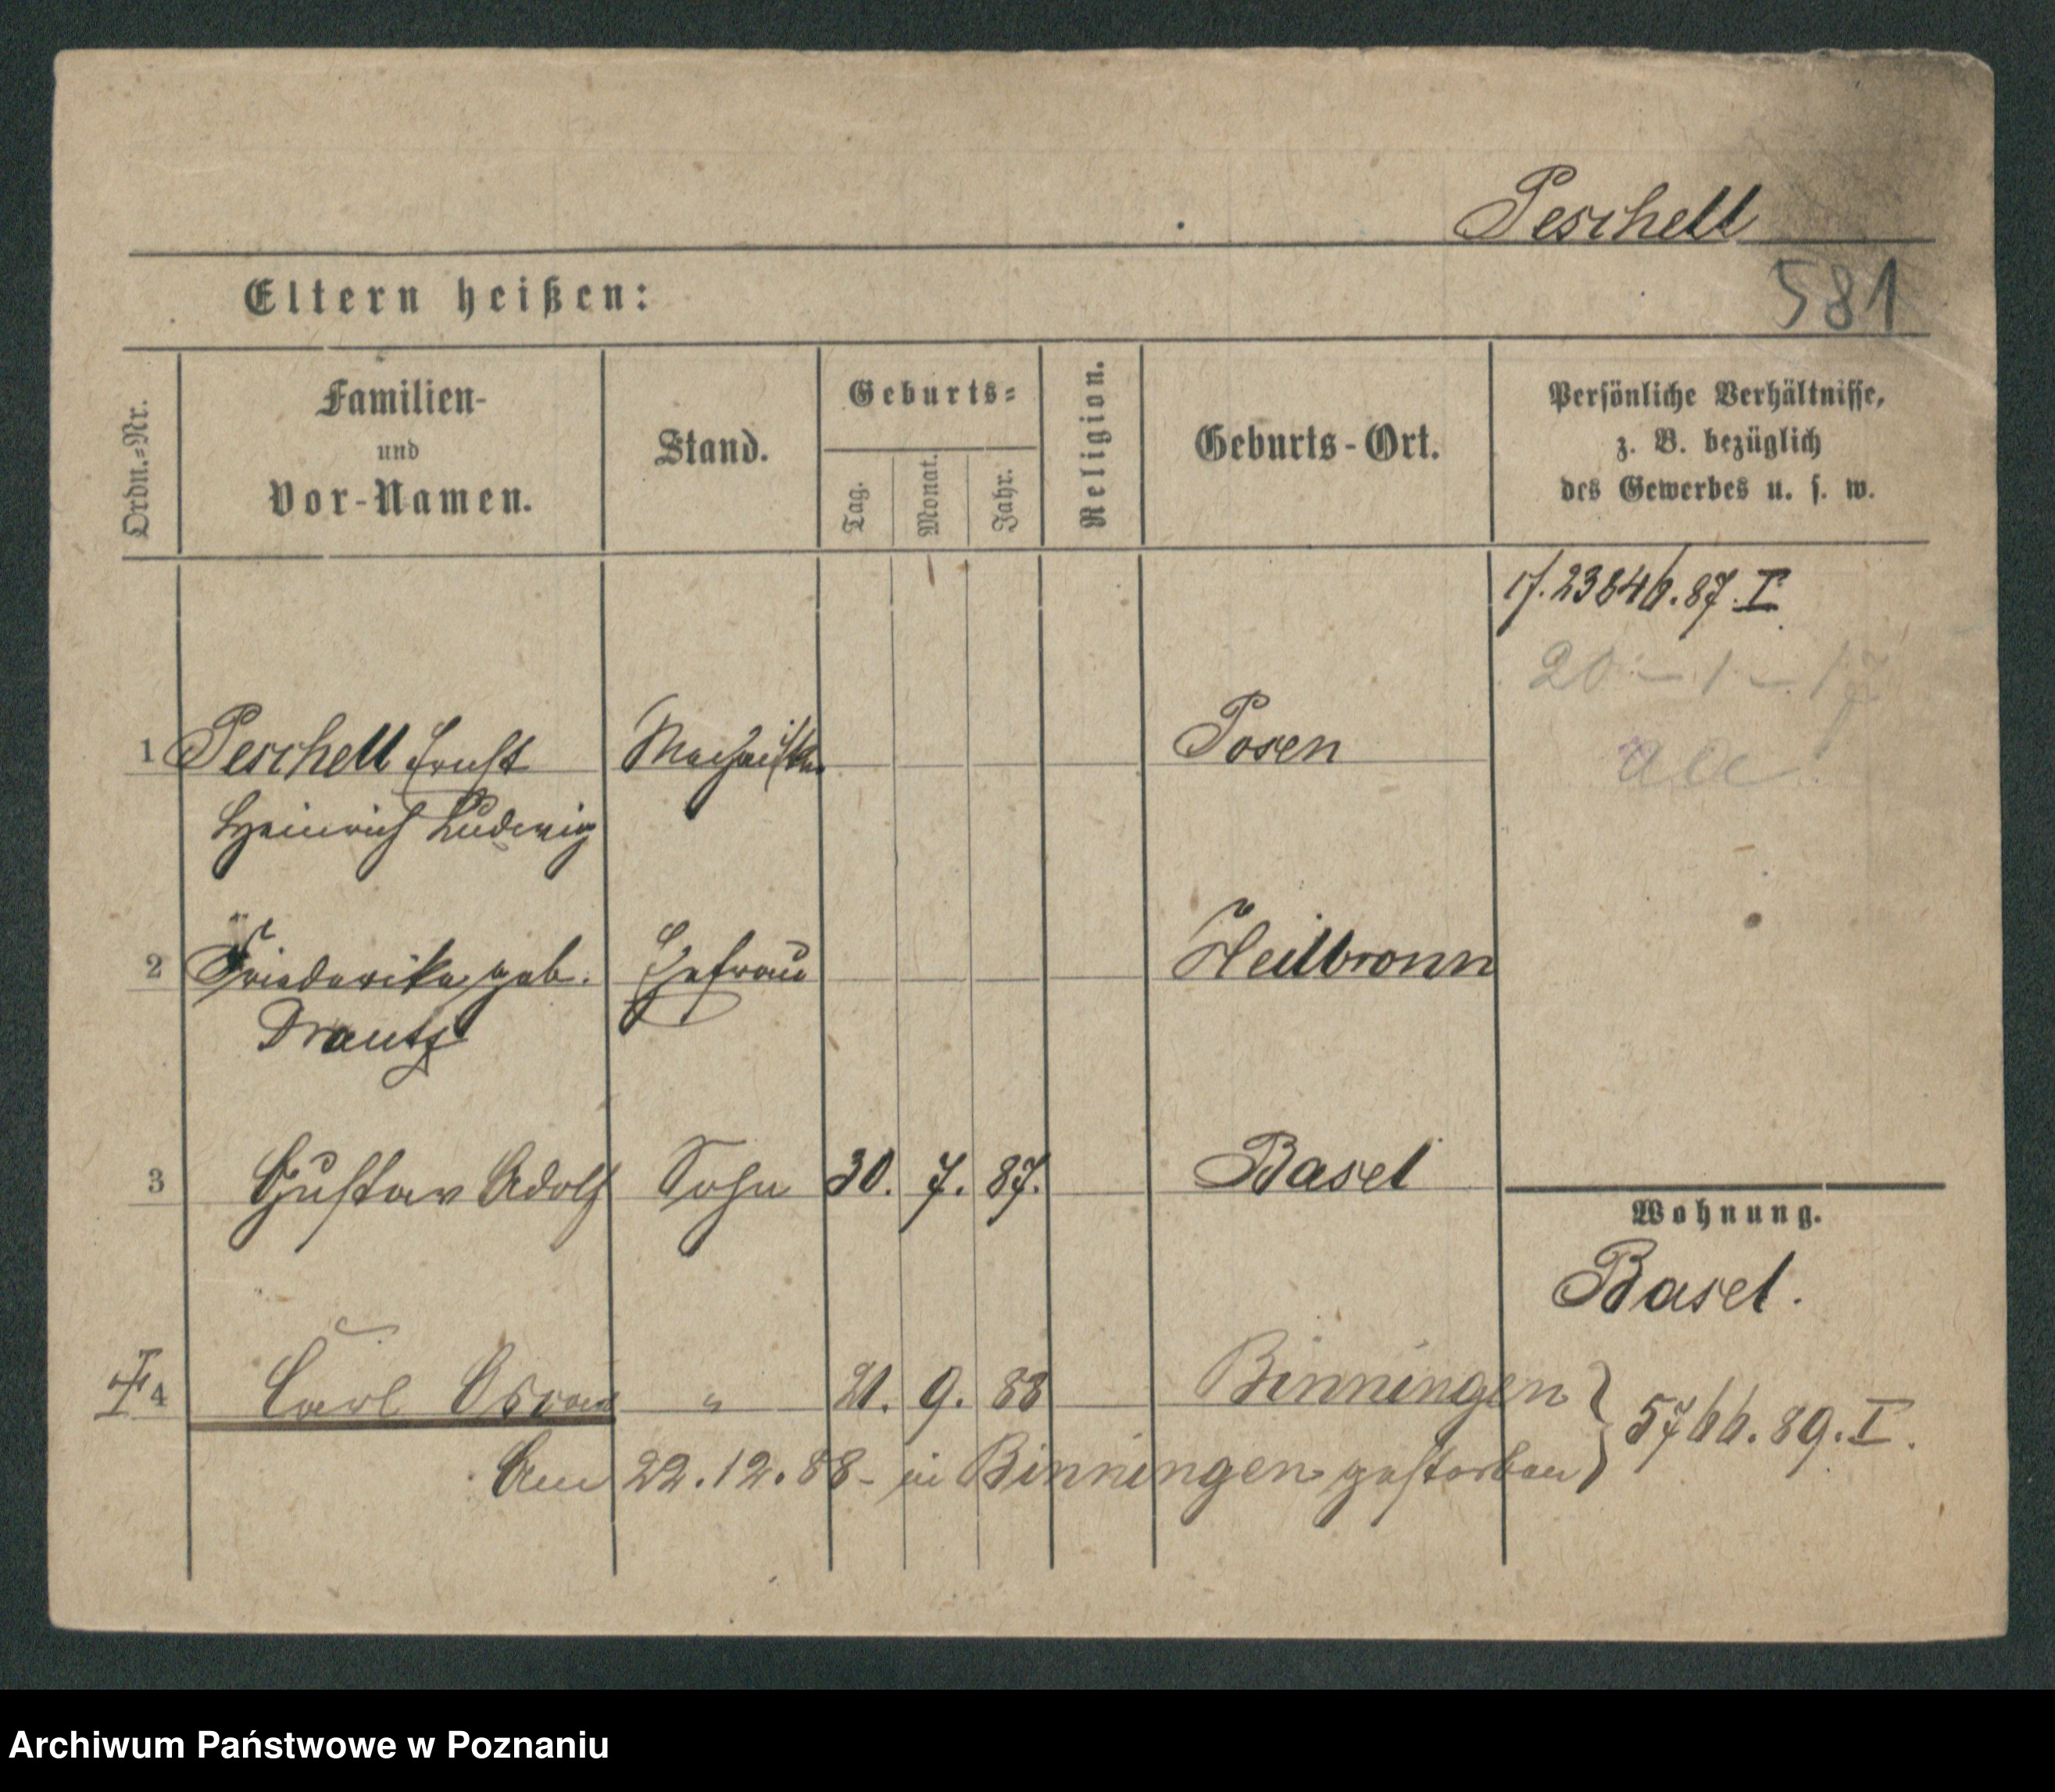 Peschell
581
Eltern heißen:
Ordn.=Nr.
Familien-
und
Vor-Namen.
Stand.
Geburts=
Tag.
Monat.
Jahr.
Religion.
Geburts-Ort.
Persönliche Verhältnisse,
z. B. bezüglich
des Gewerbes u. s. w.
17. 23846.87.I
20-1-17
1 Peschell Ernst Posen
Heinrich Ludwig
2 Friederike, geb. Ehefrau Heilbronn
Drautz
3 Gustav Adolf Sohn 30. 7. 87. Basel
Wohnung.
Basel.
4 Carl Oscar " 21. 9. 88 Binningen
5766.89.I.
Am 22.12.88- in Binningen gestorben
Archiwum Państwowe w Poznaniu